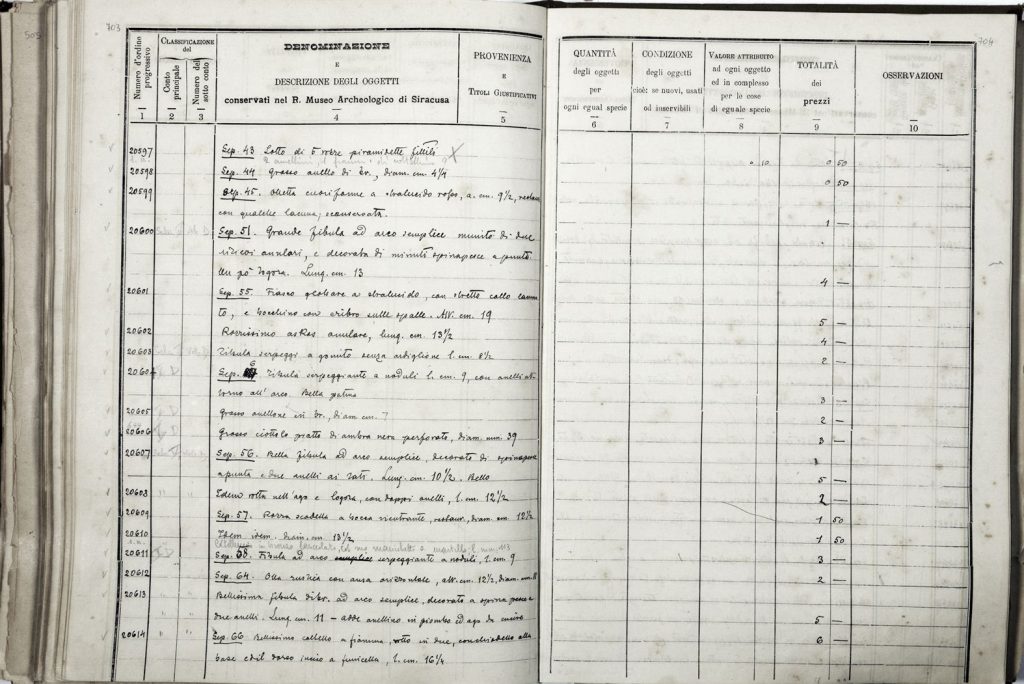 703
505
704
Numero d'ordine progressivo
CLASSIFICAZIONE del
Conto principale
Numero del sotto conto
DENOMINAZIONE
E
DESCRIZIONE DEGLI OGGETTI
conservati nel R. Museo Archeologico di Siracusa
PROVENIENZA
E
TITOLI GIUSTIFICATIVI
QUANTITÀ
degli oggetti
per
ogni egual specie
CONDIZIONE
degli oggetti
cioè: se nuovi, usati
od inservibili
VALORE ATTRIBUITO
ad ogni oggetto
ed in complesso
per le cose
di eguale specie
TOTALITÀ
dei
prezzi
OSSERVAZIONI
1 2 3 4 5 6 7 8 9 10
20597 Sep. 43 Lotto di 5 rozze piramidette fittili X 0 10 0 50
20598 Sep. 44 Grosso anello di br., diam. cm. 4 1/4 0 50
20599 Sep. 45. Olletta cuoriforme a stralucido rosso, a. cm. 9 1/2, restaur
con qualche lacuna, sconservata. 1 —
20600 Sep. 51. Grande fibula ad arco semplice munito di due
rilievi anulari, e decorata di minuti spinapesce a punta
Un pò logora. Lung. cm. 13 4 —
20601 Sep. 55. Fiasco globare a stralucido, con stretto collo
to, e bocchino con cribro sulle spalle. Alt. cm. 19 5 —
20602 Rozzissimo askos anulare, lung. cm. 13 1/2 4 —
20603 Fibula serpeggi a gomito senza ardiglione l. cm. 8 1/2 2 —
20604 Sep. Fibula serpeggiante a noduli l. cm. 9, con anelli at
torno all'arco. Bella patina 3 —
20605 Grosso anellone in br., diam. cm. 7 2 —
20606 Grosso ciottolo piatto di ambra nera perforato, diam. mm. 39 3 —
20607 Sep. 56. Bella fibula ad arco semplice, decorato di spinapesce
a punta e due anelli ai lati. Lung. cm. 10 1/2. Bello 5 —
20608 Idem rotta nell'ago e logora, con doppi anelli, l. cm. 12 1/2 2 —
20609 Sep. 57. Rozza scodella a bocca rientrante, restaur., diam. cm. 12 1/2 1 50
20610 Idem idem. diam. cm. 13 1/2 1 50
20611 Sep. 58. Fibula ad arco semplice serpeggiante a noduli, l. cm. 9 3 —
20612 Sep. 64. Olla rustica con ansa orizzontale, alt. cm. 12 1/2, diam. 2 —
20613 Bellissima fibula di br. ad arco semplice, decorato a spina pesce e
due anelli. Lung. cm. 11 — adde anellino in piombo ed ago da cucire 5 —
20614 Sep. 66 Bellissimo coltello a fiamma, rotto in due, con chiodetto alla 6 —
base ed il dorso inciso a funicella, l. cm. 16 1/4